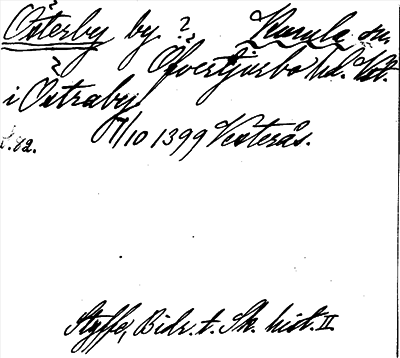 Österby by ? Kumla sn.
Öfvertjurbo hd. Vstm.
i Östraby
17/10 1399 Vesterås.
s. 82.
Styffe, Bidr. t. Sk. hist. II